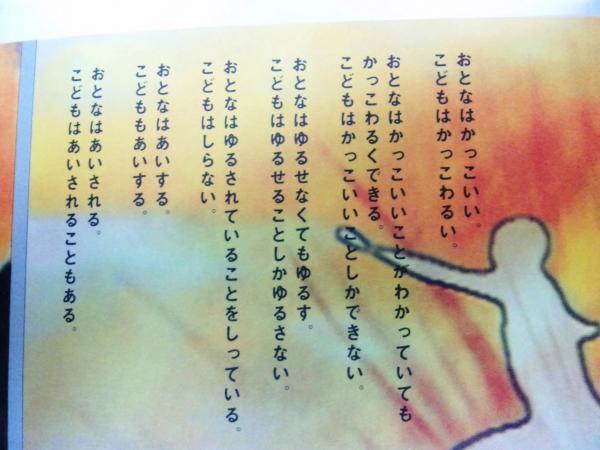 おとなはかっこいい。
こどもはかっこわるい。
おとなはかっこいいことがわかっていても
かっこわるくできる。
こどもはかっこいいことしかできない。
おとなはゆるせなくてもゆるす。
こどもはゆるせることしかゆるさない。
おとなはゆるされていることをしっている。
こどもはしらない。
おとなはあいする。
こどももあいする。
おとなはあいされる。
こどもはあいされることもある。